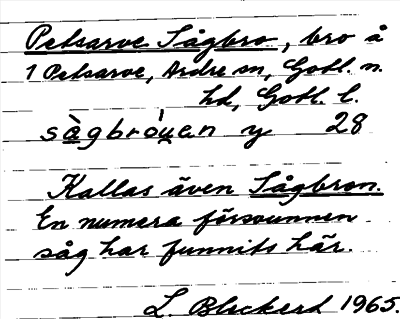 Petsarve Sågbro, bro å
1 Petsarve, Ardre sn, Gotl. n.
hd, Gotl. l.
sàgbróu̯en y 28
Kallas även Sågbron.
En numera försvunnen
såg har funnits här.
L. Bleckert 1965.